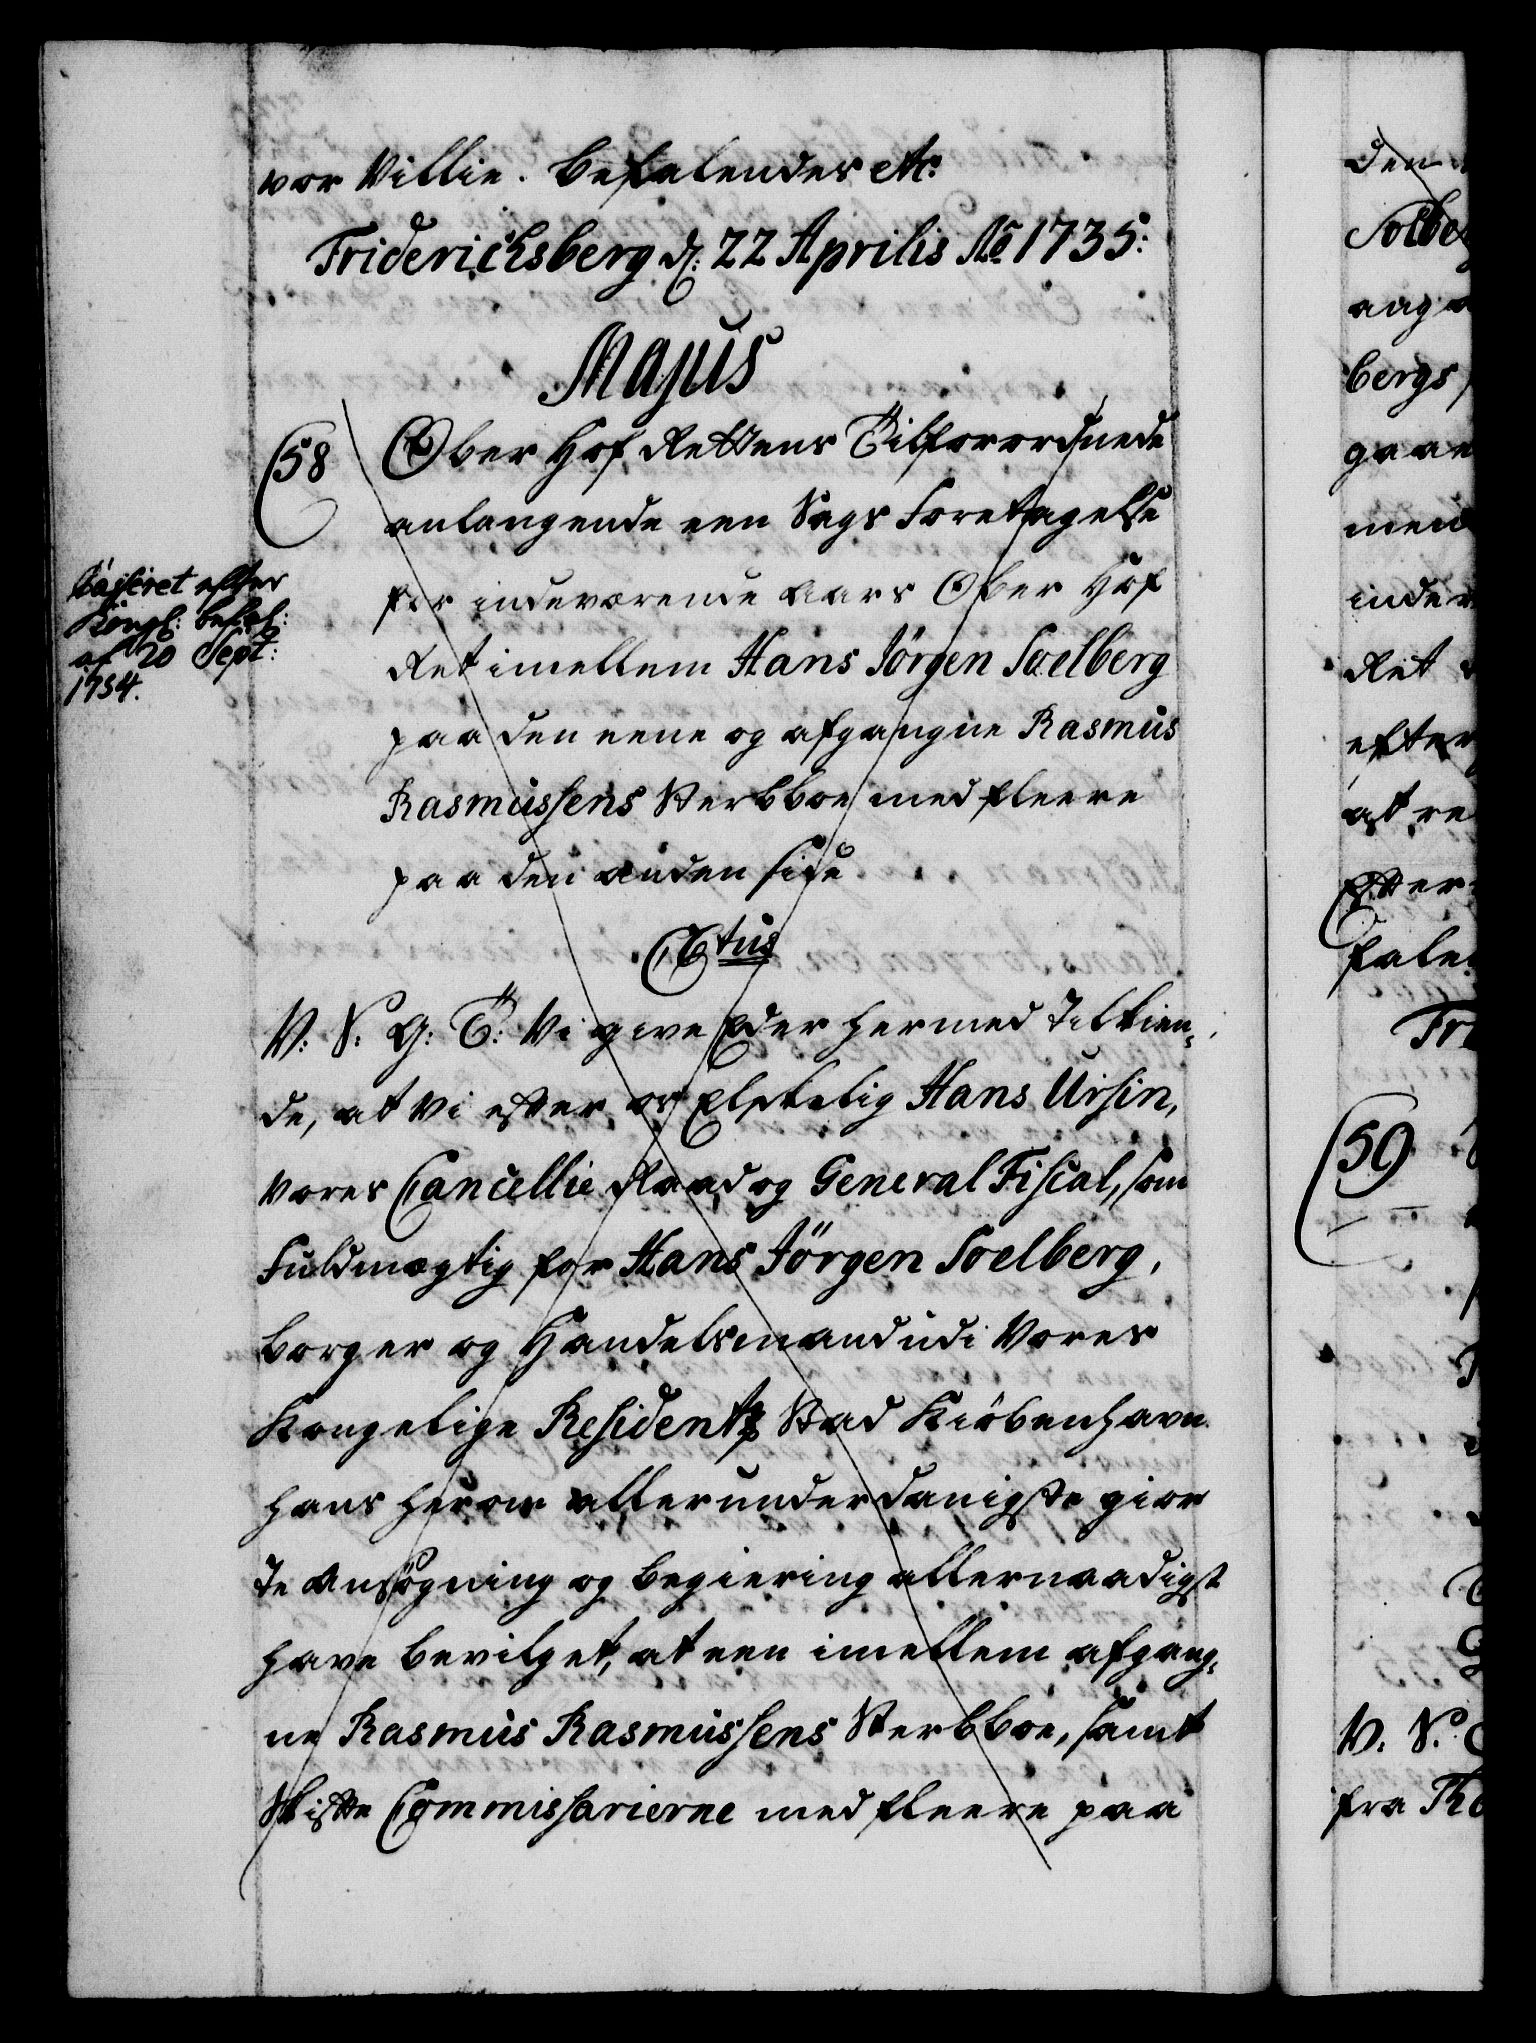 vor Villie. Befalendes etc:
Friderichsberg d: 22 Aprilis Ao 1735:
Majus
58
Ober Hof Rettens Tilforordnede
anlangende een Sags Foretagelse
for indeværende Aars Ober Hof
Ret imellem Hans Jörgen Soelberg
paa den eene og afgangne Rasmus
Rasmussens Sterbboe med fleere
paa den anden side
Casseret efter
Kongl: befal:
af 20 Sept:
1734.
C Ctus
V: S: G: T: Vi give Eder hermed Tilkien-
de, at Vi efter os Elskelig Hans Ursin,
Vores Cancellie Raad og General Fiscal, som
Fuldmægtig for Hans Jörgen Soelberg,
borger og Handelsmand udi Vores
Kongelige Residentz Stad Kiöbenhavn
hans herom allerunderdanigste gior
te Ansögning og Begiering allernaadigst
have bevilget, at een imellem afgang-
ne Rasmus Rasmussens Sterbboe, samt
Skifte Commissarierne med fleere paa
den
Solber
ang
bergs
gaae
men
inder
Ret
efter
at re
Efter
fale
Fri
59
V. S.
fra